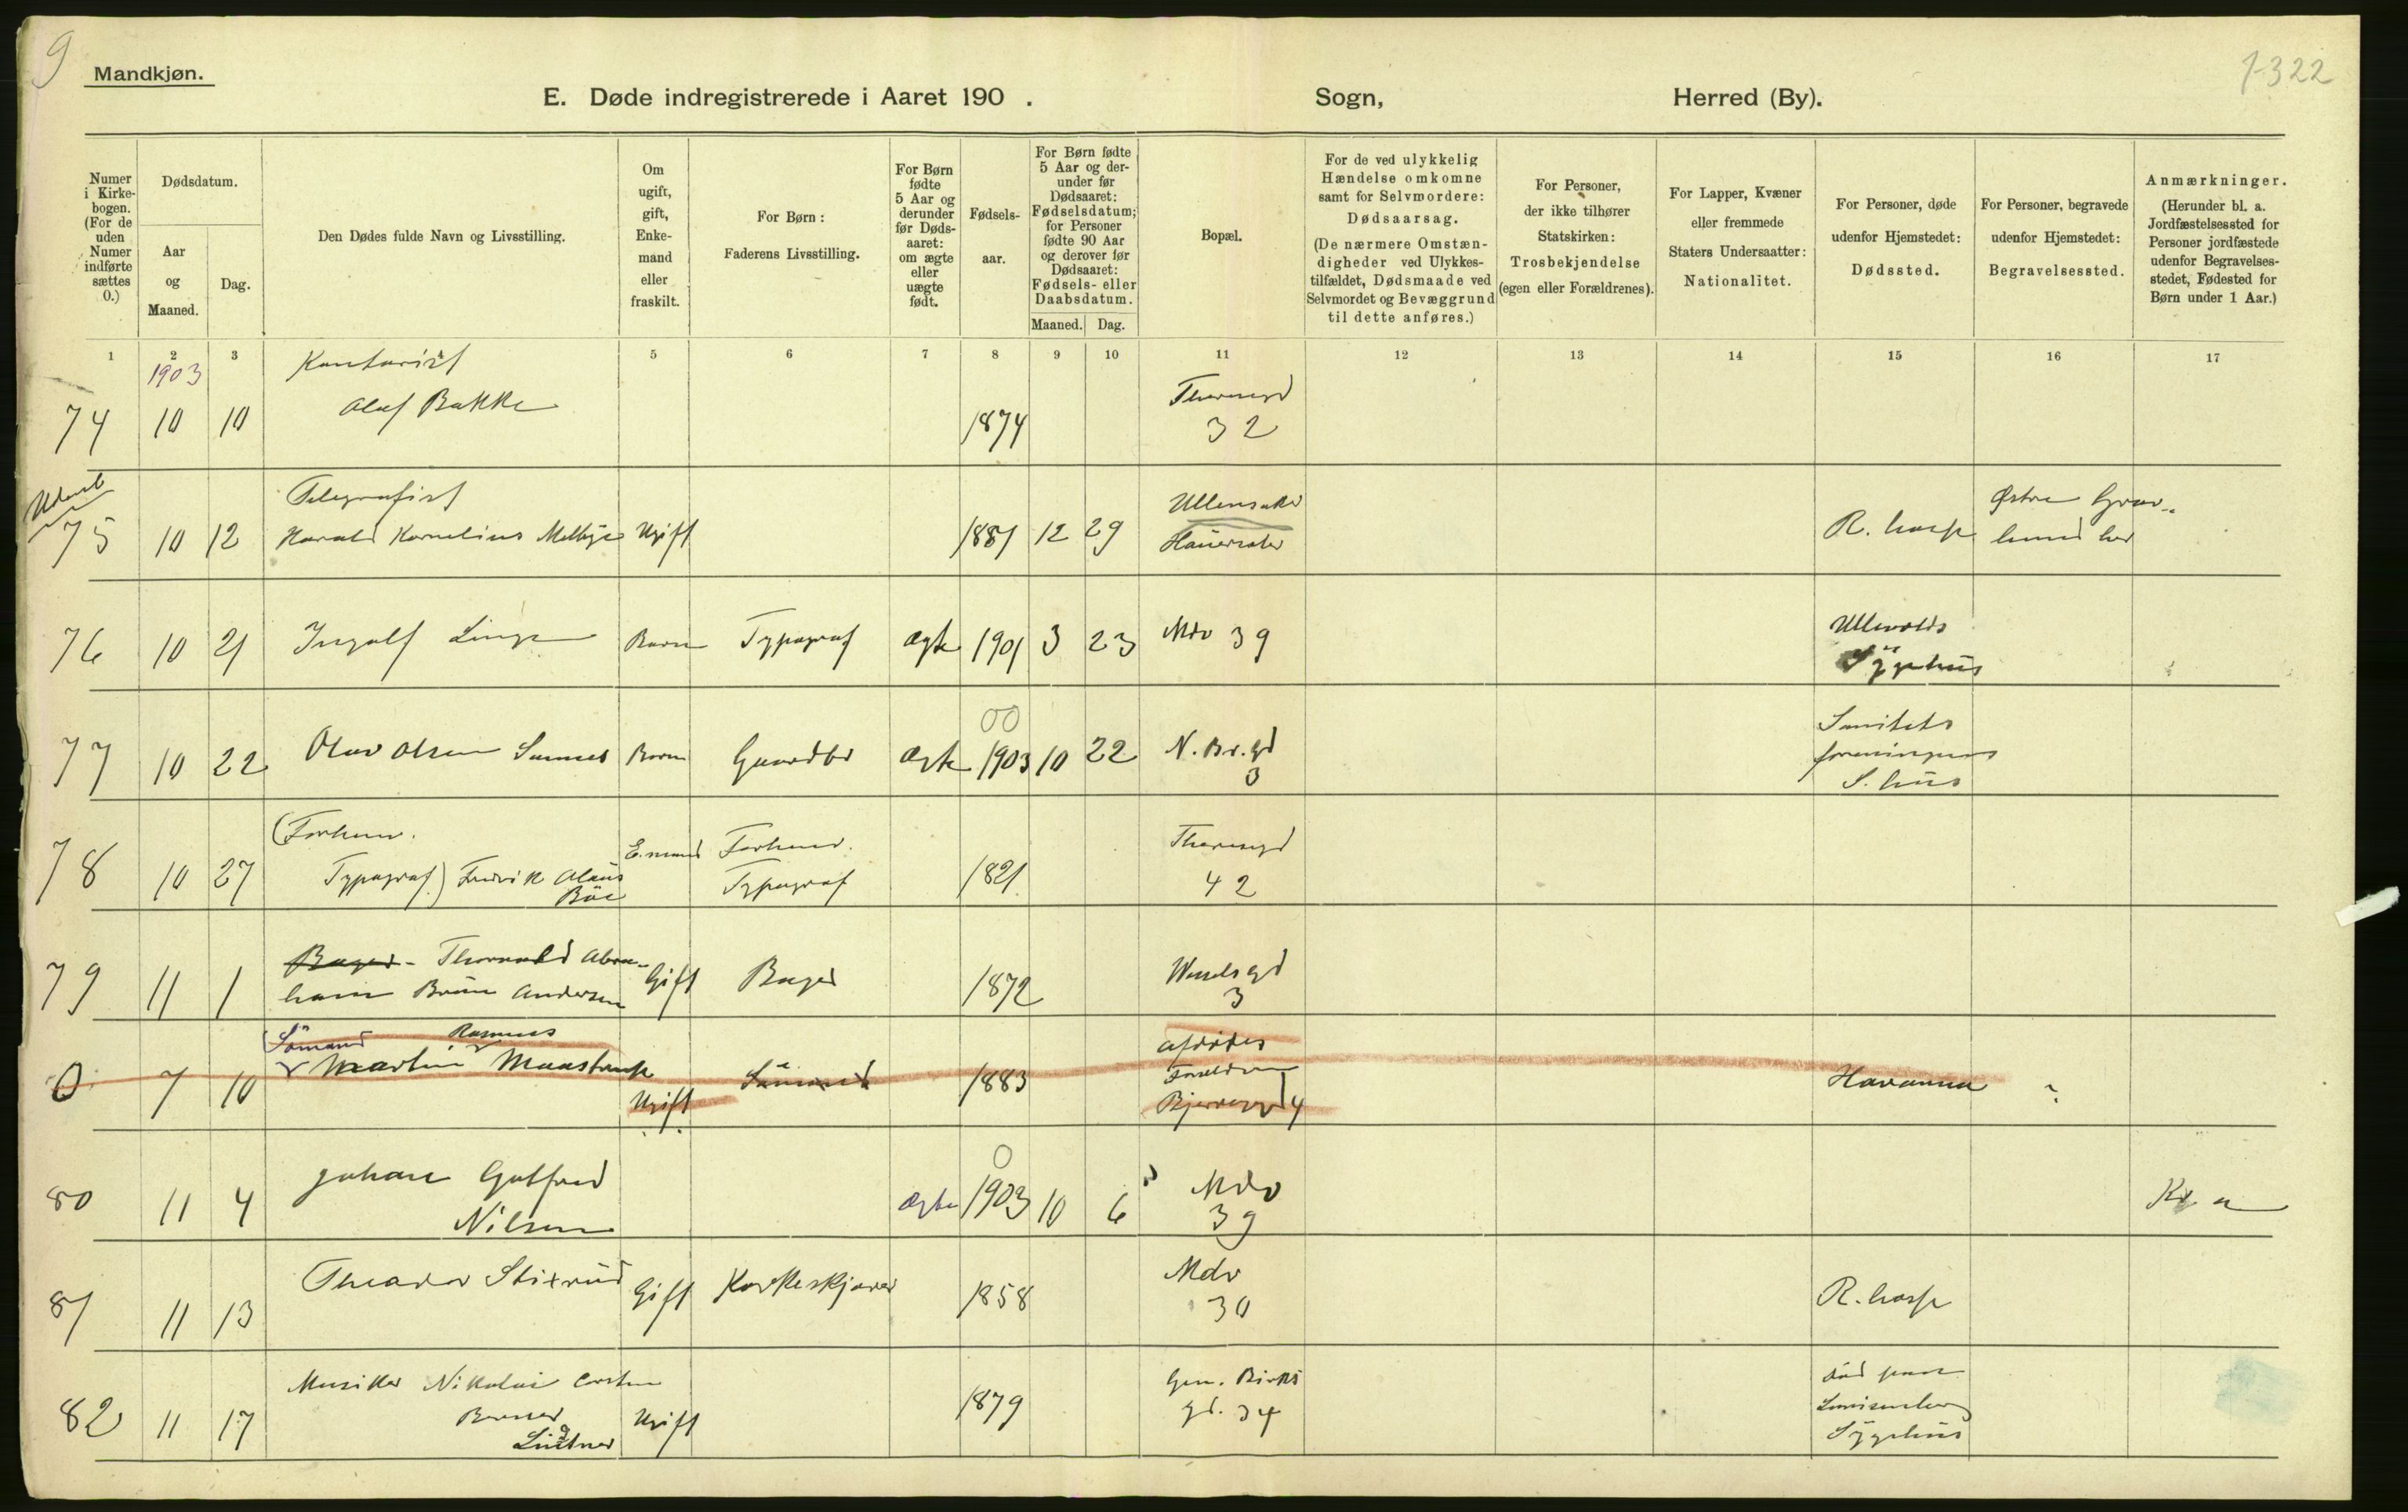 9
Mandkjøn.
1322
E. Døde indregistrerede i Aaret 190 . Sogn, Herred (By).
Numer i Kirkebogen. (For de uden Numer indførte sættes 0.)
Dødsdatum.
Aar og Maaned.
Dag.
Den Dødes fulde Navn og Livsstilling.
Om ugift, gift, Enkemand eller fraskilt.
For Børn: Faderens Livsstilling.
For Børn fødte 5 Aar og derunder før Dødsaaret: om ægte eller uægte født.
Fødselsaar.
For Børn fødte 5 Aar og derunder før Dødsaaret: Fødselsdatum; for Personer fødte 90 Aar og derover før Dødsaaret: Fødsels- eller Daabsdatum.
Maaned. Dag.
Bopæl.
For de ved ulykkelig Hændelse omkomne samt for Selvmordere: Dødsaarsag. (De nærmere Omstændigheder ved Ulykkestilfældet, Dødsmaade ved Selvmordet og Bevæggrund til dette anføres.)
For Personer, der ikke tilhører Statskirken: Trosbekjendelse (egen eller Forældrenes).
For Lapper, Kvæner eller fremmede Staters Undersaatter: Nationalitet.
For Personer, døde udenfor Hjemstedet: Dødssted.
For Personer, begravede udenfor Hjemstedet: Begravelsessted.
Anmærkninger. (Herunder bl. a. Jordfæstelsessted for Personer jordfæstede udenfor Begravelsesstedet, Fødested for Børn under 1 Aar.)
1 2 3 5 6 7 8 9 10 11 12 13 14 15 16 17
1903
Kontorist
74 10 10 Olaf Bakke 1874 32
Telegrafist Ullensaker Østre Grav-
75 10 12 Harald Kornelius Melbye Ugift 1881 12 29 R. hosp. lund her
76 10 21 Ingolf Barn Typograf Ægte 1901 3 23 Mdv 39 Ullevolds
Sygehus
00 Sanitets
77 10 22 Olav Olsen Barn Gaardbr Ægte 1903 10 22 N. Br. gd foreningens
3 S. hus
(Forhenv. E.mand Forhenv. Theresegd
78 10 27 Typograf) Fredrik Olaus Typograf 1821 42
Bøe
79 11 1 Bager - Thorvald Abra- Gift Bager 1872 Wesselsgd
ham Bruun Andersen 3
Sømand Rasmus afdødes
0 7 10 Martin Maastrup Ugift Sømand 1883 Forældre Havanna ?
4
0
80 11 4 Johan Gotfred Ægte 1903 10 6 Mdv Kr. a
Nilsen 39
81 11 13 Theodor Stixrud Gift Korkeskjærer 1858 Mdv R. hosp
30
82 11 17 Musiker Nikolai Carsten Ugift 1879 Gen. Birks død paa
gd. 34 Lovisenberg
Lintner Sygehus